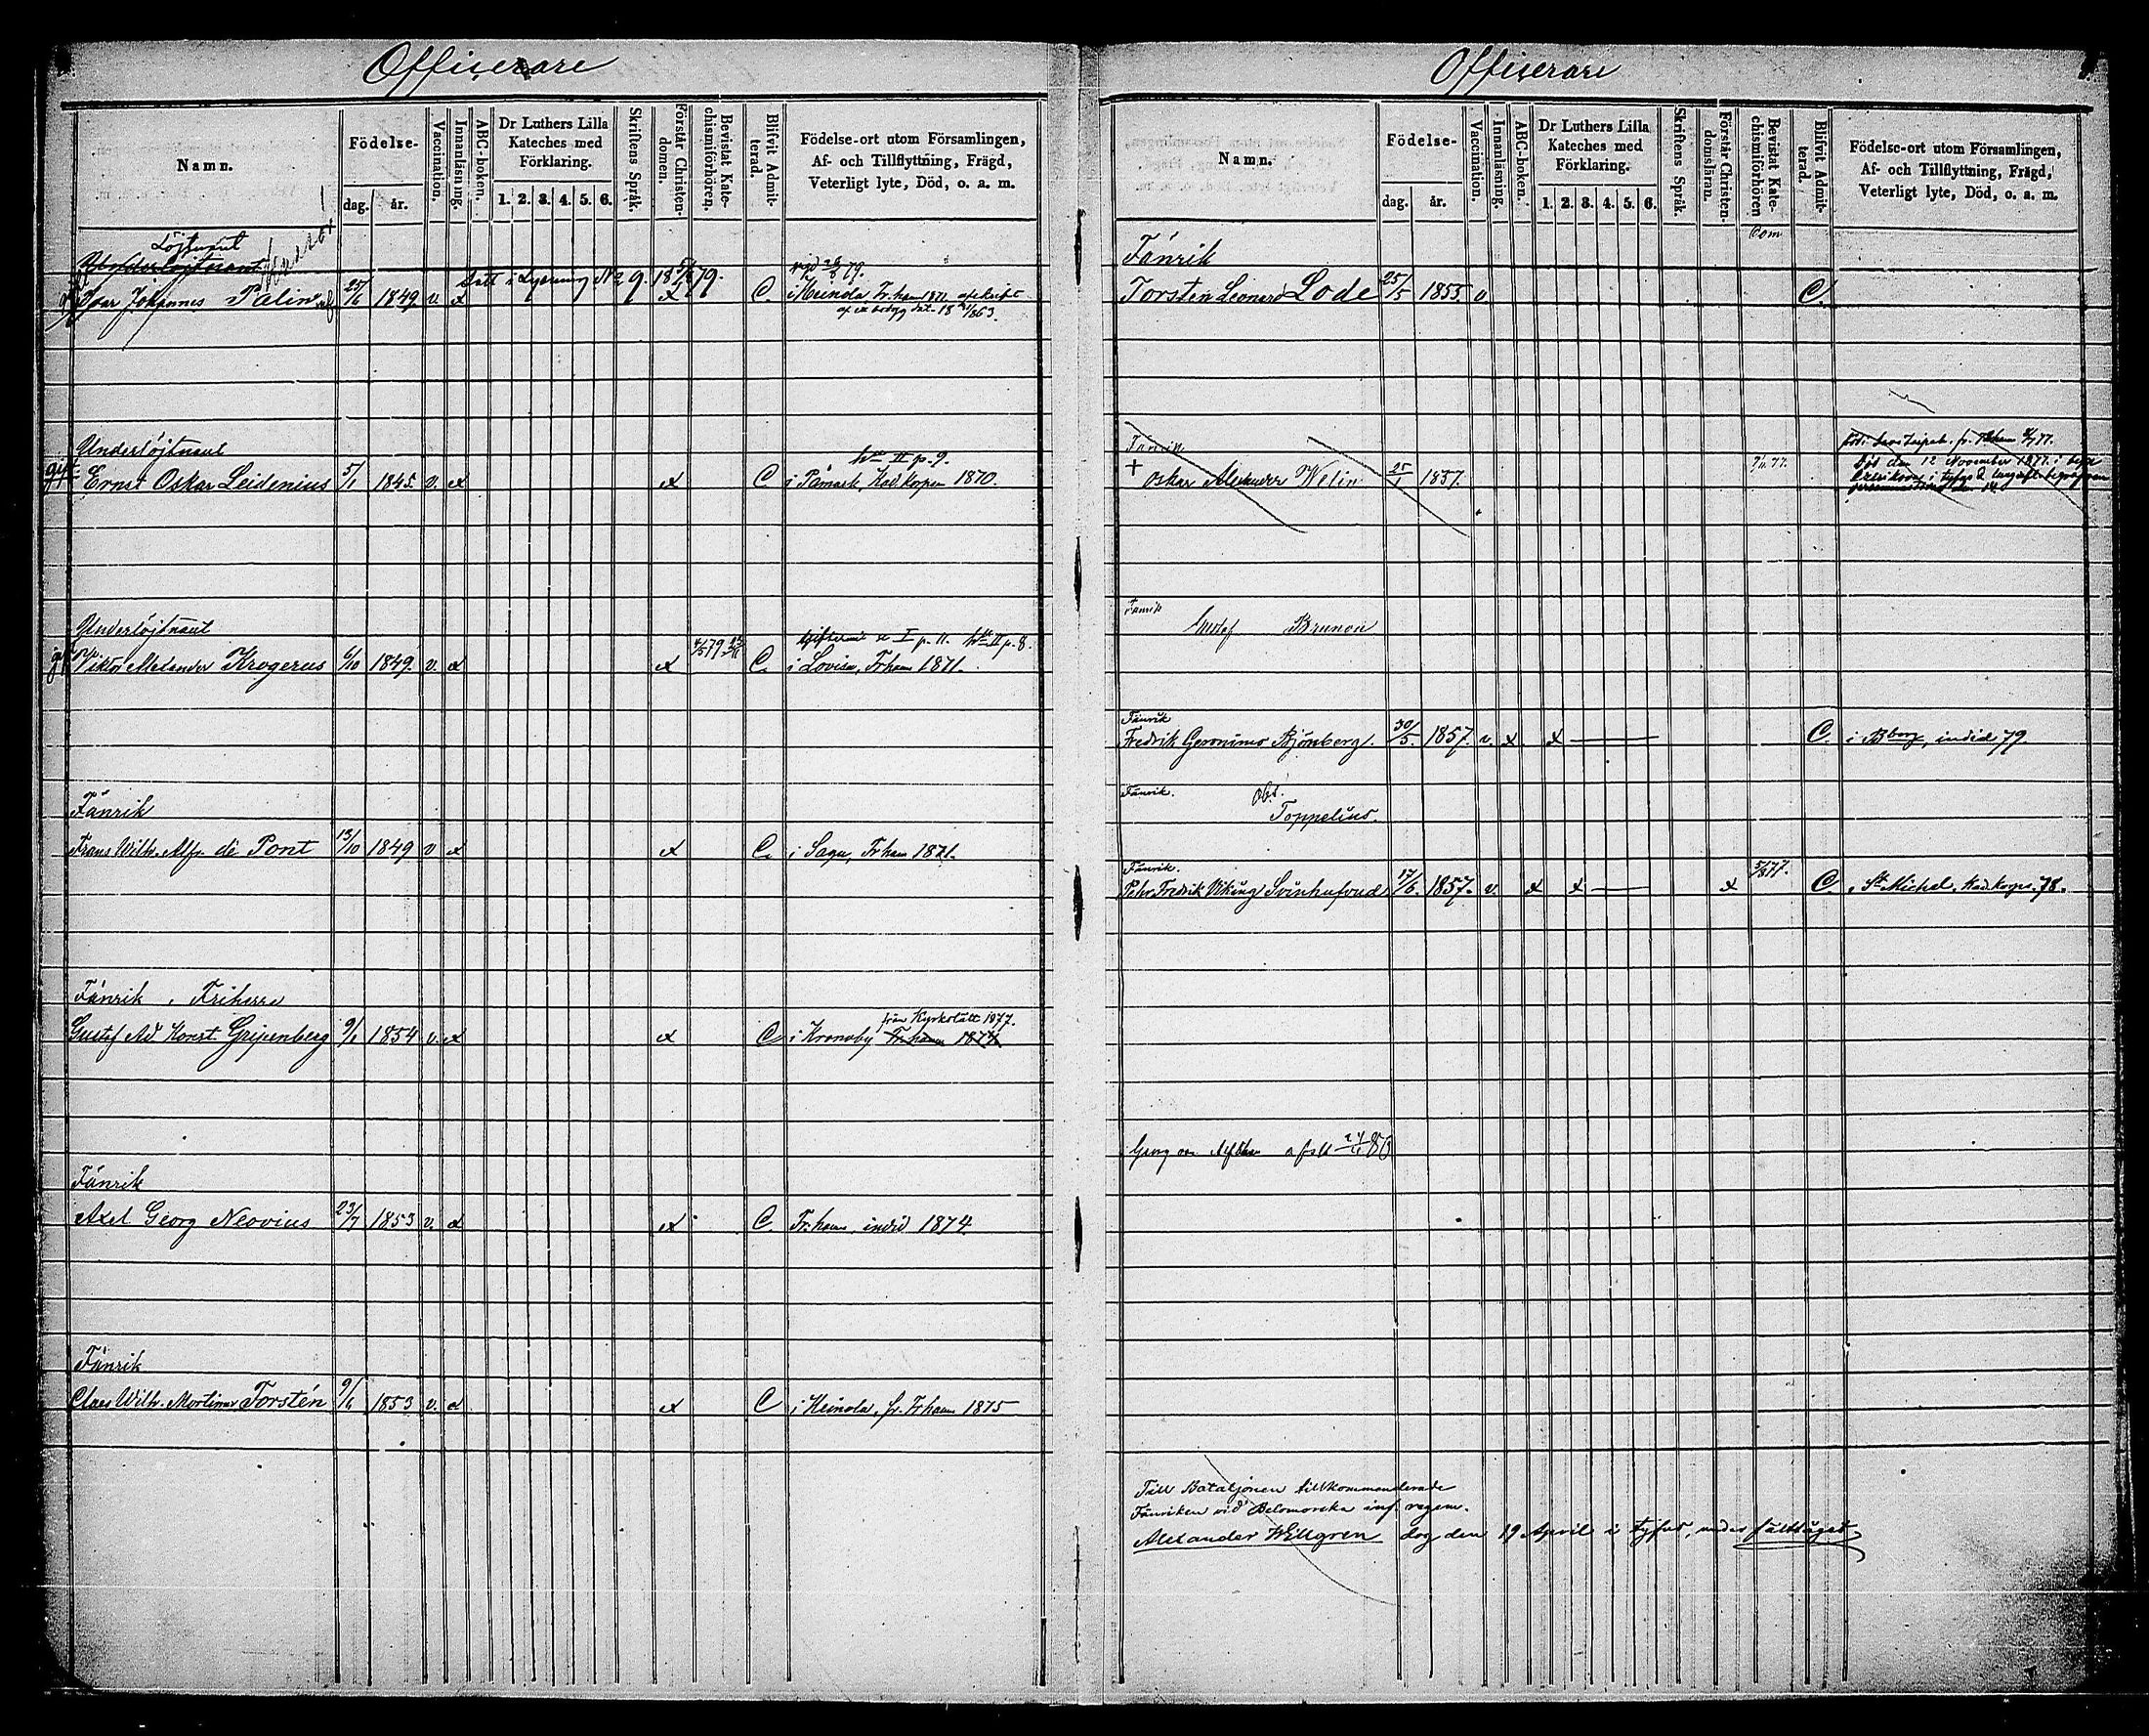 Officerare
Namn.
Födelse-
dag.
år.
Vaccination.
Innanläsning.
ABC-boken.
Dr Luthers Lilla Kateches med Förklaring.
1. 2. 3. 4. 5. 6.
Skriftens Språk.
Förstår Christen-domen.
Bevistat Kate-chismiförhören.
Blifvit Admit-terad.
Födelse-ort utom Församlingen,
Af- och Tillflyttning, Frägd,
Veterligt lyte, Död, o. a. m.
Löjtnant
Underlöjtnant
Satt i Lysning N:o 9. 18 5/1 79.
Ivar Johannes Palin 25/6 1849 v x x C. i Heinola Fr.ham 1871
Underlöjtnant
II p. 9.
gift Ernst Oskar Leidenius 5/1 1845. v. x x C i Påmark, Kad. korpsen 1870.
Underlöjtnant
I p. 11. II p. 8.
Viktor Alexander Krogerus 6/10 1849. v. x x C. i Lovisa, Fr.ham 1871.
Fänrik
Frans Wilh. Alfr. de Pont 13/10 1849 v x x C. i Sagu, Fr ham 1871.
Fänrik, Friherre
från Kyrkslätt 1877.
Gustaf Ad. Konst. Gripenberg 9/1 1854 v. x x C i Kronoby Fr. hamn 1874
Fänrik
Axel Georg Neovius 23/7 1853 v. x x C. Fr. hamn, indid 1874.
Fänrik
Claes Wilh. Mortimer Forstén 9/6 1853 v. x x C i Heinola, fr. Fr hamn 1875
Officerare
Namn.
Födelse-
dag.
år.
Vaccination.
Innanläsning.
ABC-boken.
Dr Luthers Lilla Kateches med Förklaring.
1. 2. 3. 4. 5. 6.
Skriftens Språk.
Förstår Christen-domsläran.
Bevistat Kate-chismiförhören
Blifvit Admit-terad.
Födelse-ort utom Församlingen,
Af- och Tillflyttning, Frägd,
Veterligt lyte, Död, o. a. m.
Fänrik
Torsten Leonard Lode 25/5 1855 v C.
Fänrik
+ Oskar Alexander Welin 25/1 1857.
död den 12 November 1877 i
Fänrik
Gustaf Brunou
Fänrik
Fredrik Geronimo Björnberg. 30/5. 1857. v. x x C. i Bborg, indid 79.
Fänrik. obs.
Toppelius.
Fänrik.
Pehr Fredrik Viking Svinhufvud 17/6. 1857. v. x x x 5/8 77. C. St Michel, Kad.korps. 78.
Georg von Alfthan
Till Bataljonen tillkommenderade
Fänriken vid Belomorska inf. regem.
Alexander Willgren dog den 19 April i tyfus, under fälttåget